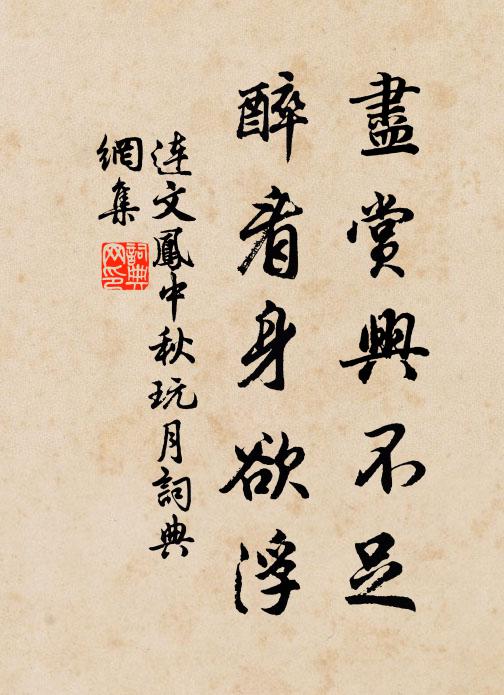 盡賞興不足
醉看身欲浮
連文鳳中秋玩月詞典
網集
詞典
网印